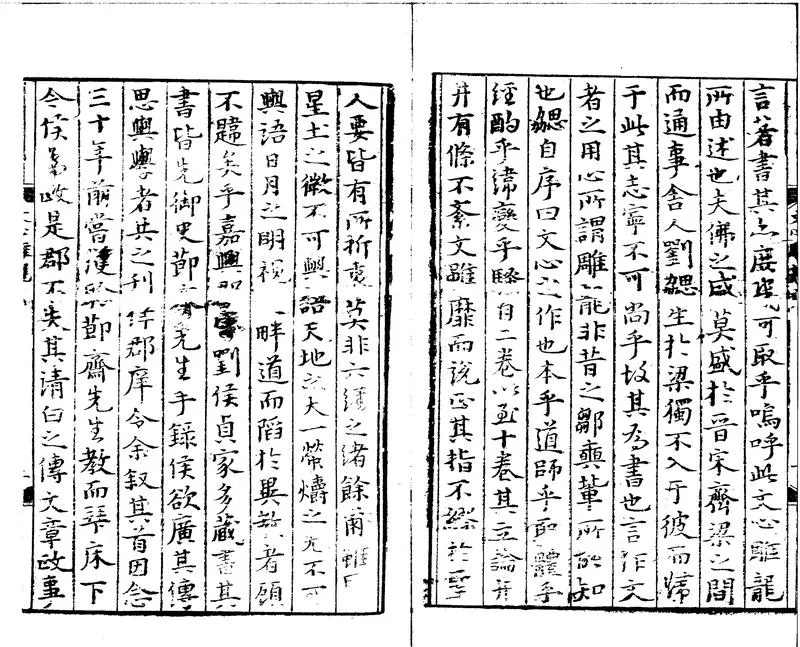 言著書其亦庶幾可取乎嗚呼此文心雕龍
所由述也夫佛之盛莫盛於晉宋齊梁之間
而通事舍人劉勰生於梁獨不入于彼而歸
于此其志寧不可尚乎故其為書也言作文
者之用心所謂雕龍非昔之鄒奭輩所能知
也勰自序曰文心之作也本乎道師乎聖體乎
經酌乎緯變乎騷自二卷以至十卷其立論井
井有條不紊文雖靡而說正其指不謬於聖
人要皆有所折衷莫非六經之緒餘爾雖曰
星土之微不可與語天地之大螢爝之光不可
與語日月之明視畔道而陷於異端者顧
不韙矣乎嘉興郡劉侯貞家多藏書其
書皆先御史節先生手錄侯欲廣其傳
思與學者共之刊梓郡庠令余敘其首因念
三十年前嘗獲聆節齋先生教而拜床下
今侯為政是郡不失其清白之傳文章政事